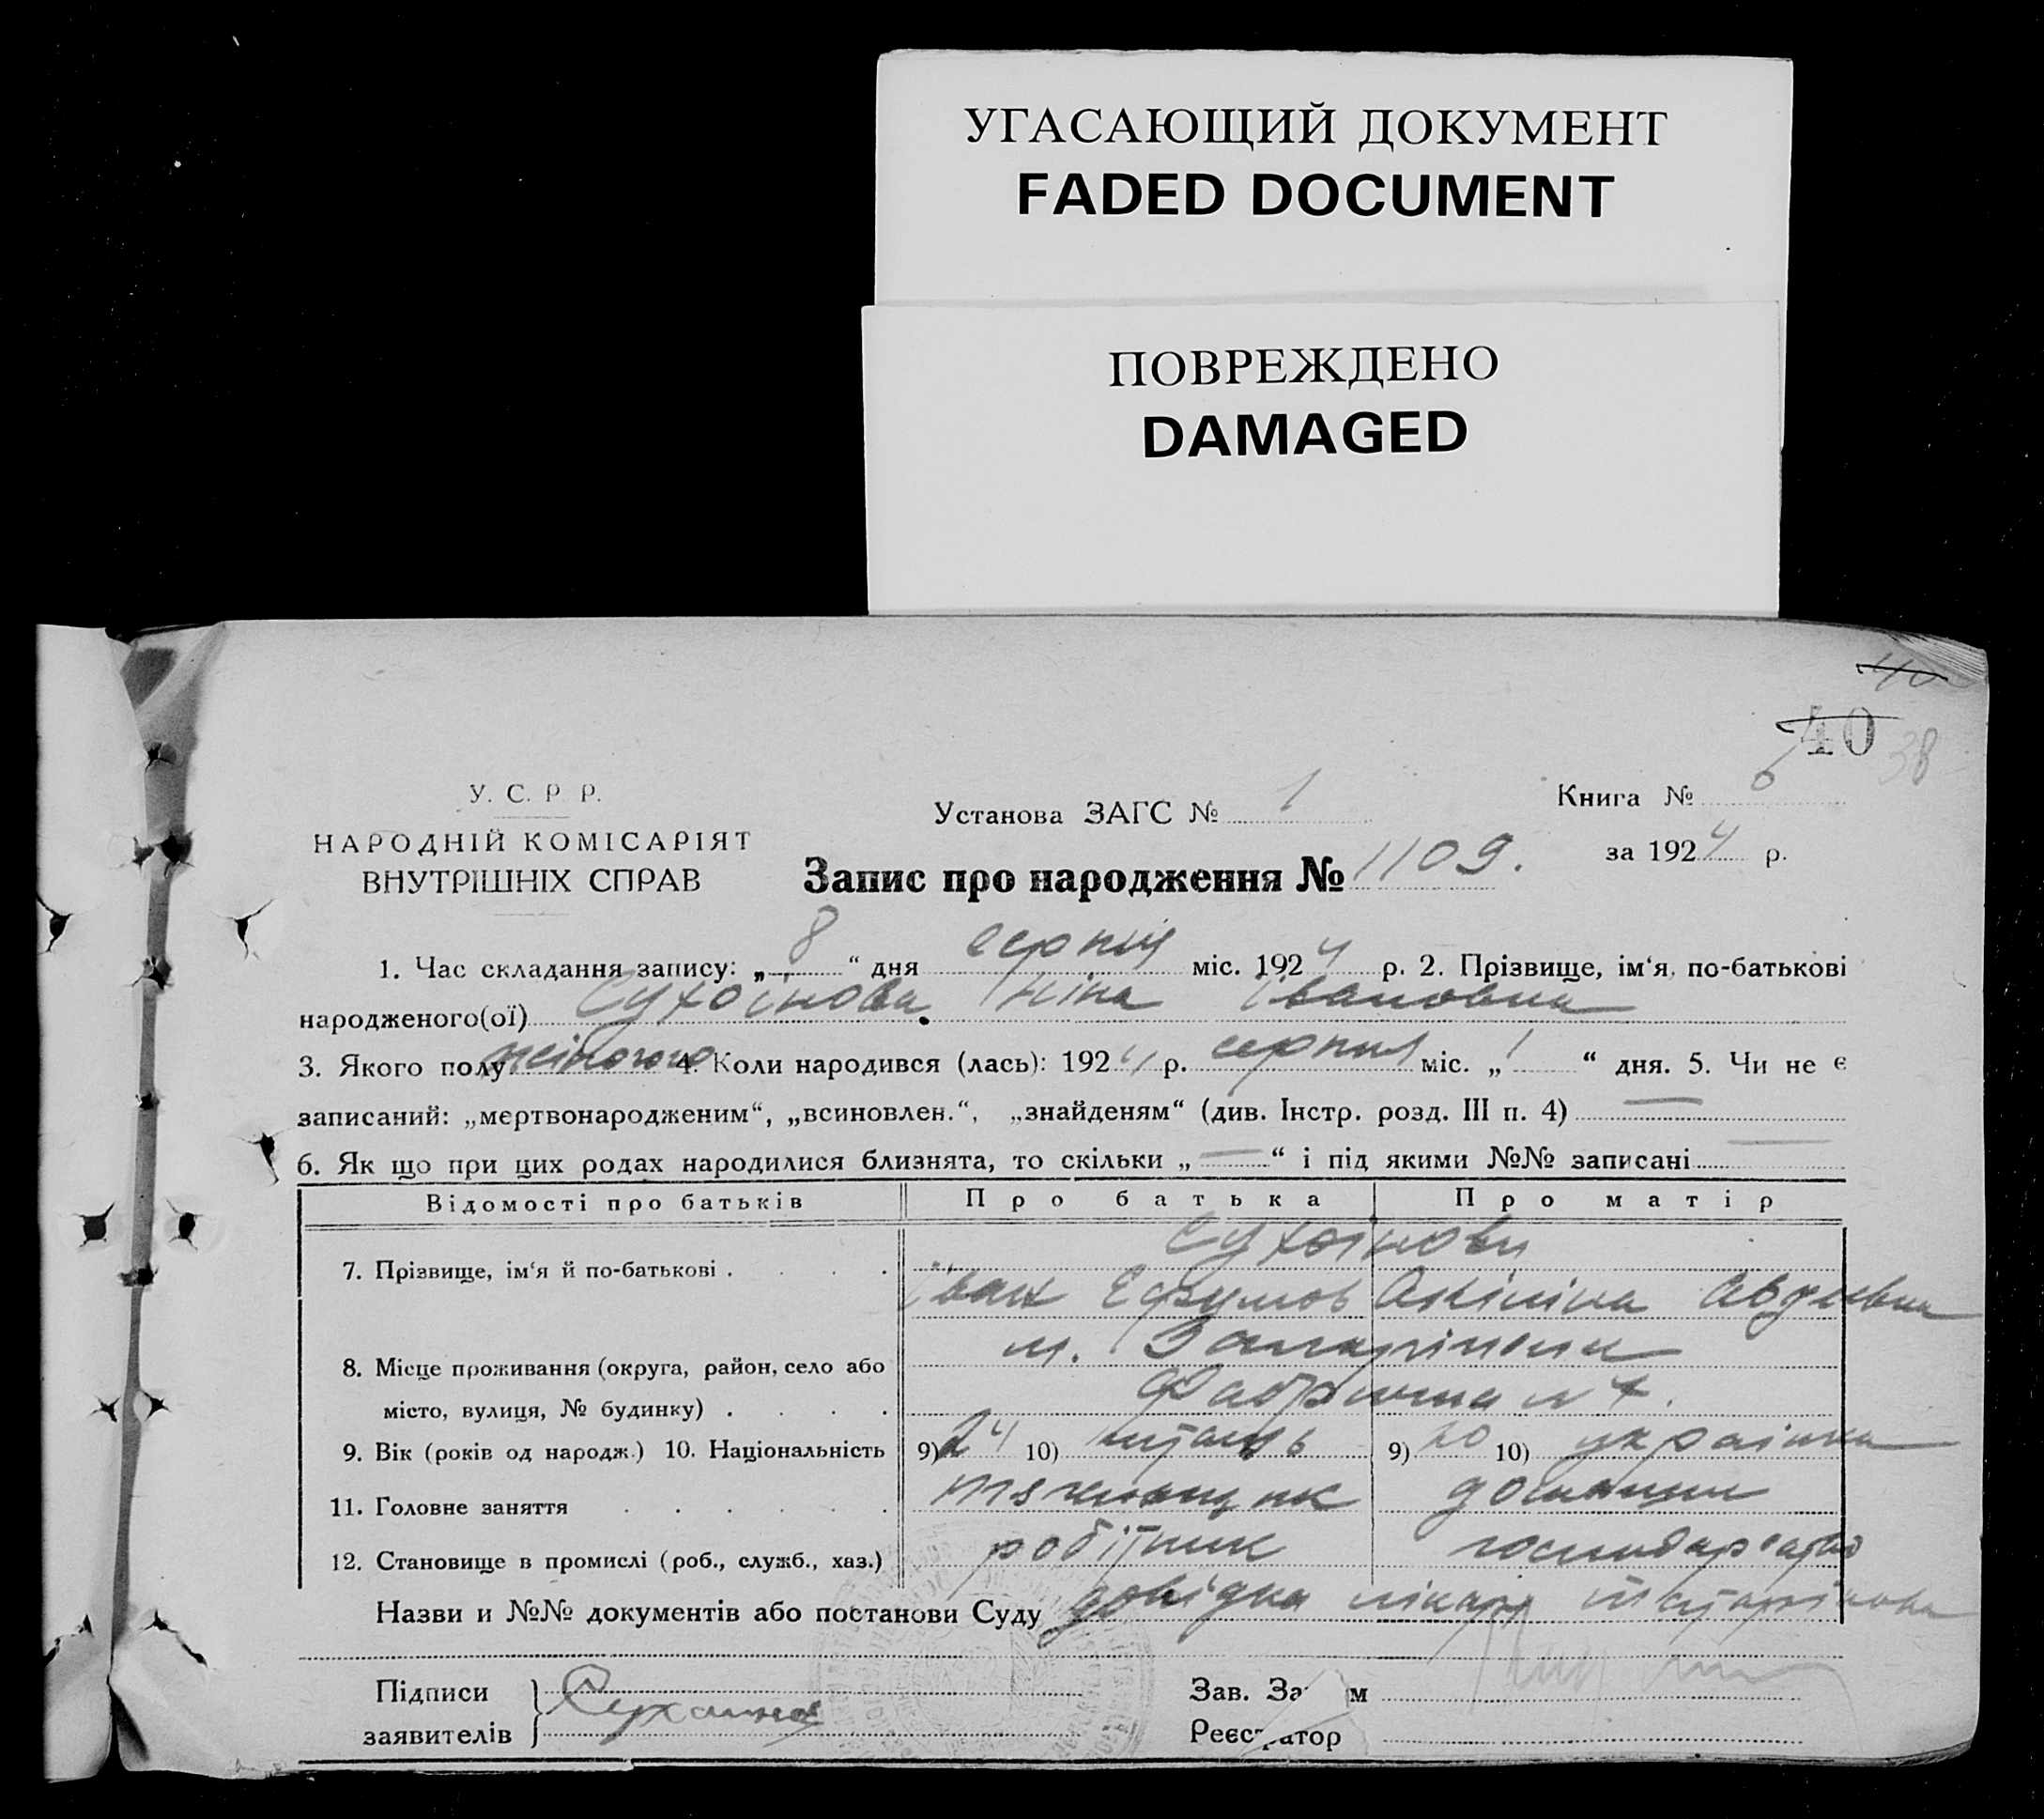 УГАСАЮЩИЙ ДОКУМЕНТ
FADED DOCUMENT
ПОВРЕЖДЕНО
DAMAGED
40
40 38
У. С. Р Р.
НАРОДНІЙ КОМІСАРІЯТ
ВНУТРІШНІХ СПРАВ
Установа ЗАГС № 1
Книга № 6
за 1924 р.
Запис про народження № 1109.
1. Час складання запису: „8“ дня серпня міс. 1924 р. 2. Прізвище, ім‘я, по-батькові
народженого(ої) Сухоінова Ніна Івановна
3. Якого полу жіночого 4. Коли народився (лась): 1924 р. серпня міс. „1“ дня. 5. Чи не є
записаний: „мертвонародженим“, „всиновлен.“, „знайденям“ (див. Інстр. розд. III п. 4) —
6. Як що при цих родах народилися близнята, то скільки „—“ і під якими №№ записані —
Відомості про батьків Про батька Про матір
7. Прізвище, ім‘я й по-батькові . . . . Сухоінови
Іван Ефумов Акіліна Авдиевна
8. Місце проживання (округа, район, село або м.
місто, вулиця, № будинку) . . . . Фабрична № 4.
9. Вік (років од народж.) 10. Національність 9) 24 10) 9) 20 10) українка
11. Головне заняття . . . . . . домашнє
12. Становище в промислі (роб., служб., хаз.) робітник господарство
Назви и №№ документів або постанови Суду довідка лікаря
Підписи
заявителів
Зав. За м
Реєстратор